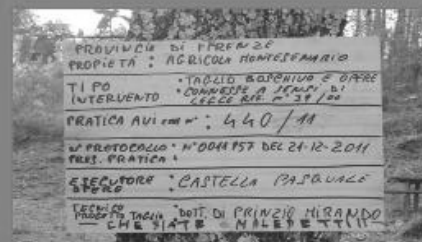 PROVINCIA DI FIRENZE
PROPIETÀ : AGRICOLA MONTESENARIO
TIPO INTERVENTO • TAGLIO BOSCHIVO E OPERE
• CONNESSE A SENSI DI
LEGGE REG. N° 39/00
PRATICA AVI N° : 440/11
N° PROTOCOLLO • N° 0011957 DEL 21-12-2011
PRES. PRATICA :
ESECUTORE OPERE : CASTELLA PASQUALE
TECNICO PROGETTO TAGLIO • DOTT. DI PRINZIO MIRANDO
— CHE SIATE MALEDETTI!!